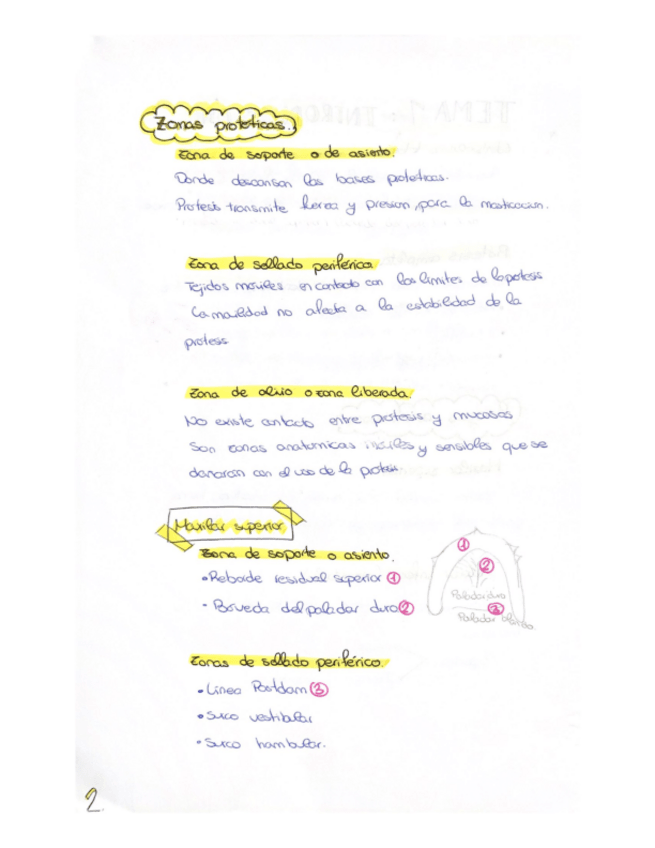 Zonas protéticas.
Zona de soporte o de asiento.
Donde descansan las bases protéticas.
Protesis transmite fuerza y presion para la masticacion.
Zona de sellado periférico
Tejidos moviles en contacto con los limites de la protesis
La movilidad no afecta a la estabilidad de la
protesis
Zona de alivio o zona liberada.
No existe contacto entre protesis y mucosas
Son zonas anatomicas y sensibles que se
dañaran con el uso de la protesis
Maxilar superior
Zona de soporte o asiento.
• Reborde residual superior 1
• Boveda del paladar duro 2
1
2
Paladar duro
3
Paladar blando
Zonas de sellado periférico.
• Linea Postdam 3
• Surco vestibular
• Surco hamular.
2